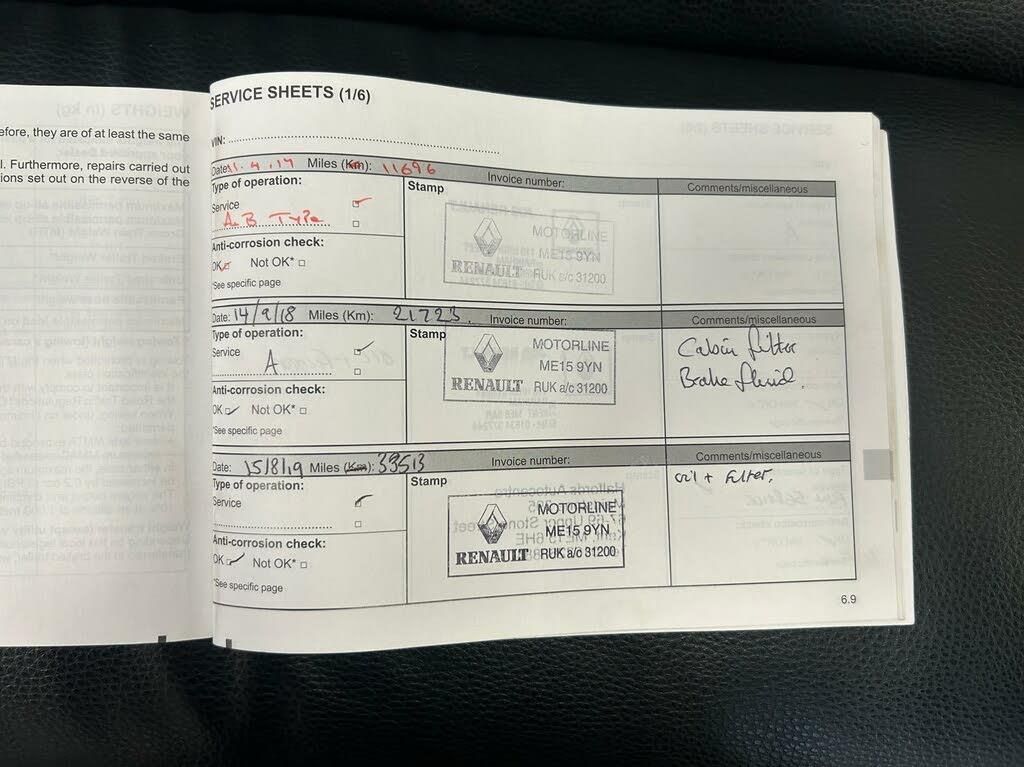 efore, they are of at least the same
l. Furthermore, repairs carried out
ions set out on the reverse of the
SERVICE SHEETS (1/6)
VIN:
Date: 11.4.17 Miles (Km): 11696 Invoice number: Comments/miscellaneous
Type of operation:
Stamp
Service
A & B Type
Anti-corrosion check:
OK Not OK*
*See specific page
MOTORLINE
ME15 9YN
RENAULT RUK a/c 31200
Date: 14/9/18 Miles (Km): 21723 Invoice number: Comments/miscellaneous
Type of operation:
Stamp
Service
A
Anti-corrosion check:
OK Not OK*
*See specific page
MOTORLINE
ME15 9YN
RENAULT RUK a/c 31200
Cabin filter
Brake fluid.
Date: 15/8/19 Miles (Km): 39513 Invoice number: Comments/miscellaneous
Type of operation:
Stamp
Service
Anti-corrosion check:
OK Not OK*
*See specific page
MOTORLINE
ME15 9YN
RENAULT RUK a/c 31200
oil + filter.
6.9